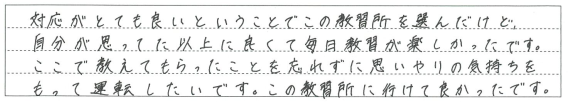 対応がとても良いということでこの教習所を選んだけど、
自分が思ってた以上に良くて毎日教習が楽しかったです。
ここで教えてもらったことを忘れずに思いやりの気持ちを
もって運転したいです。この教習所に行けて良かったです。